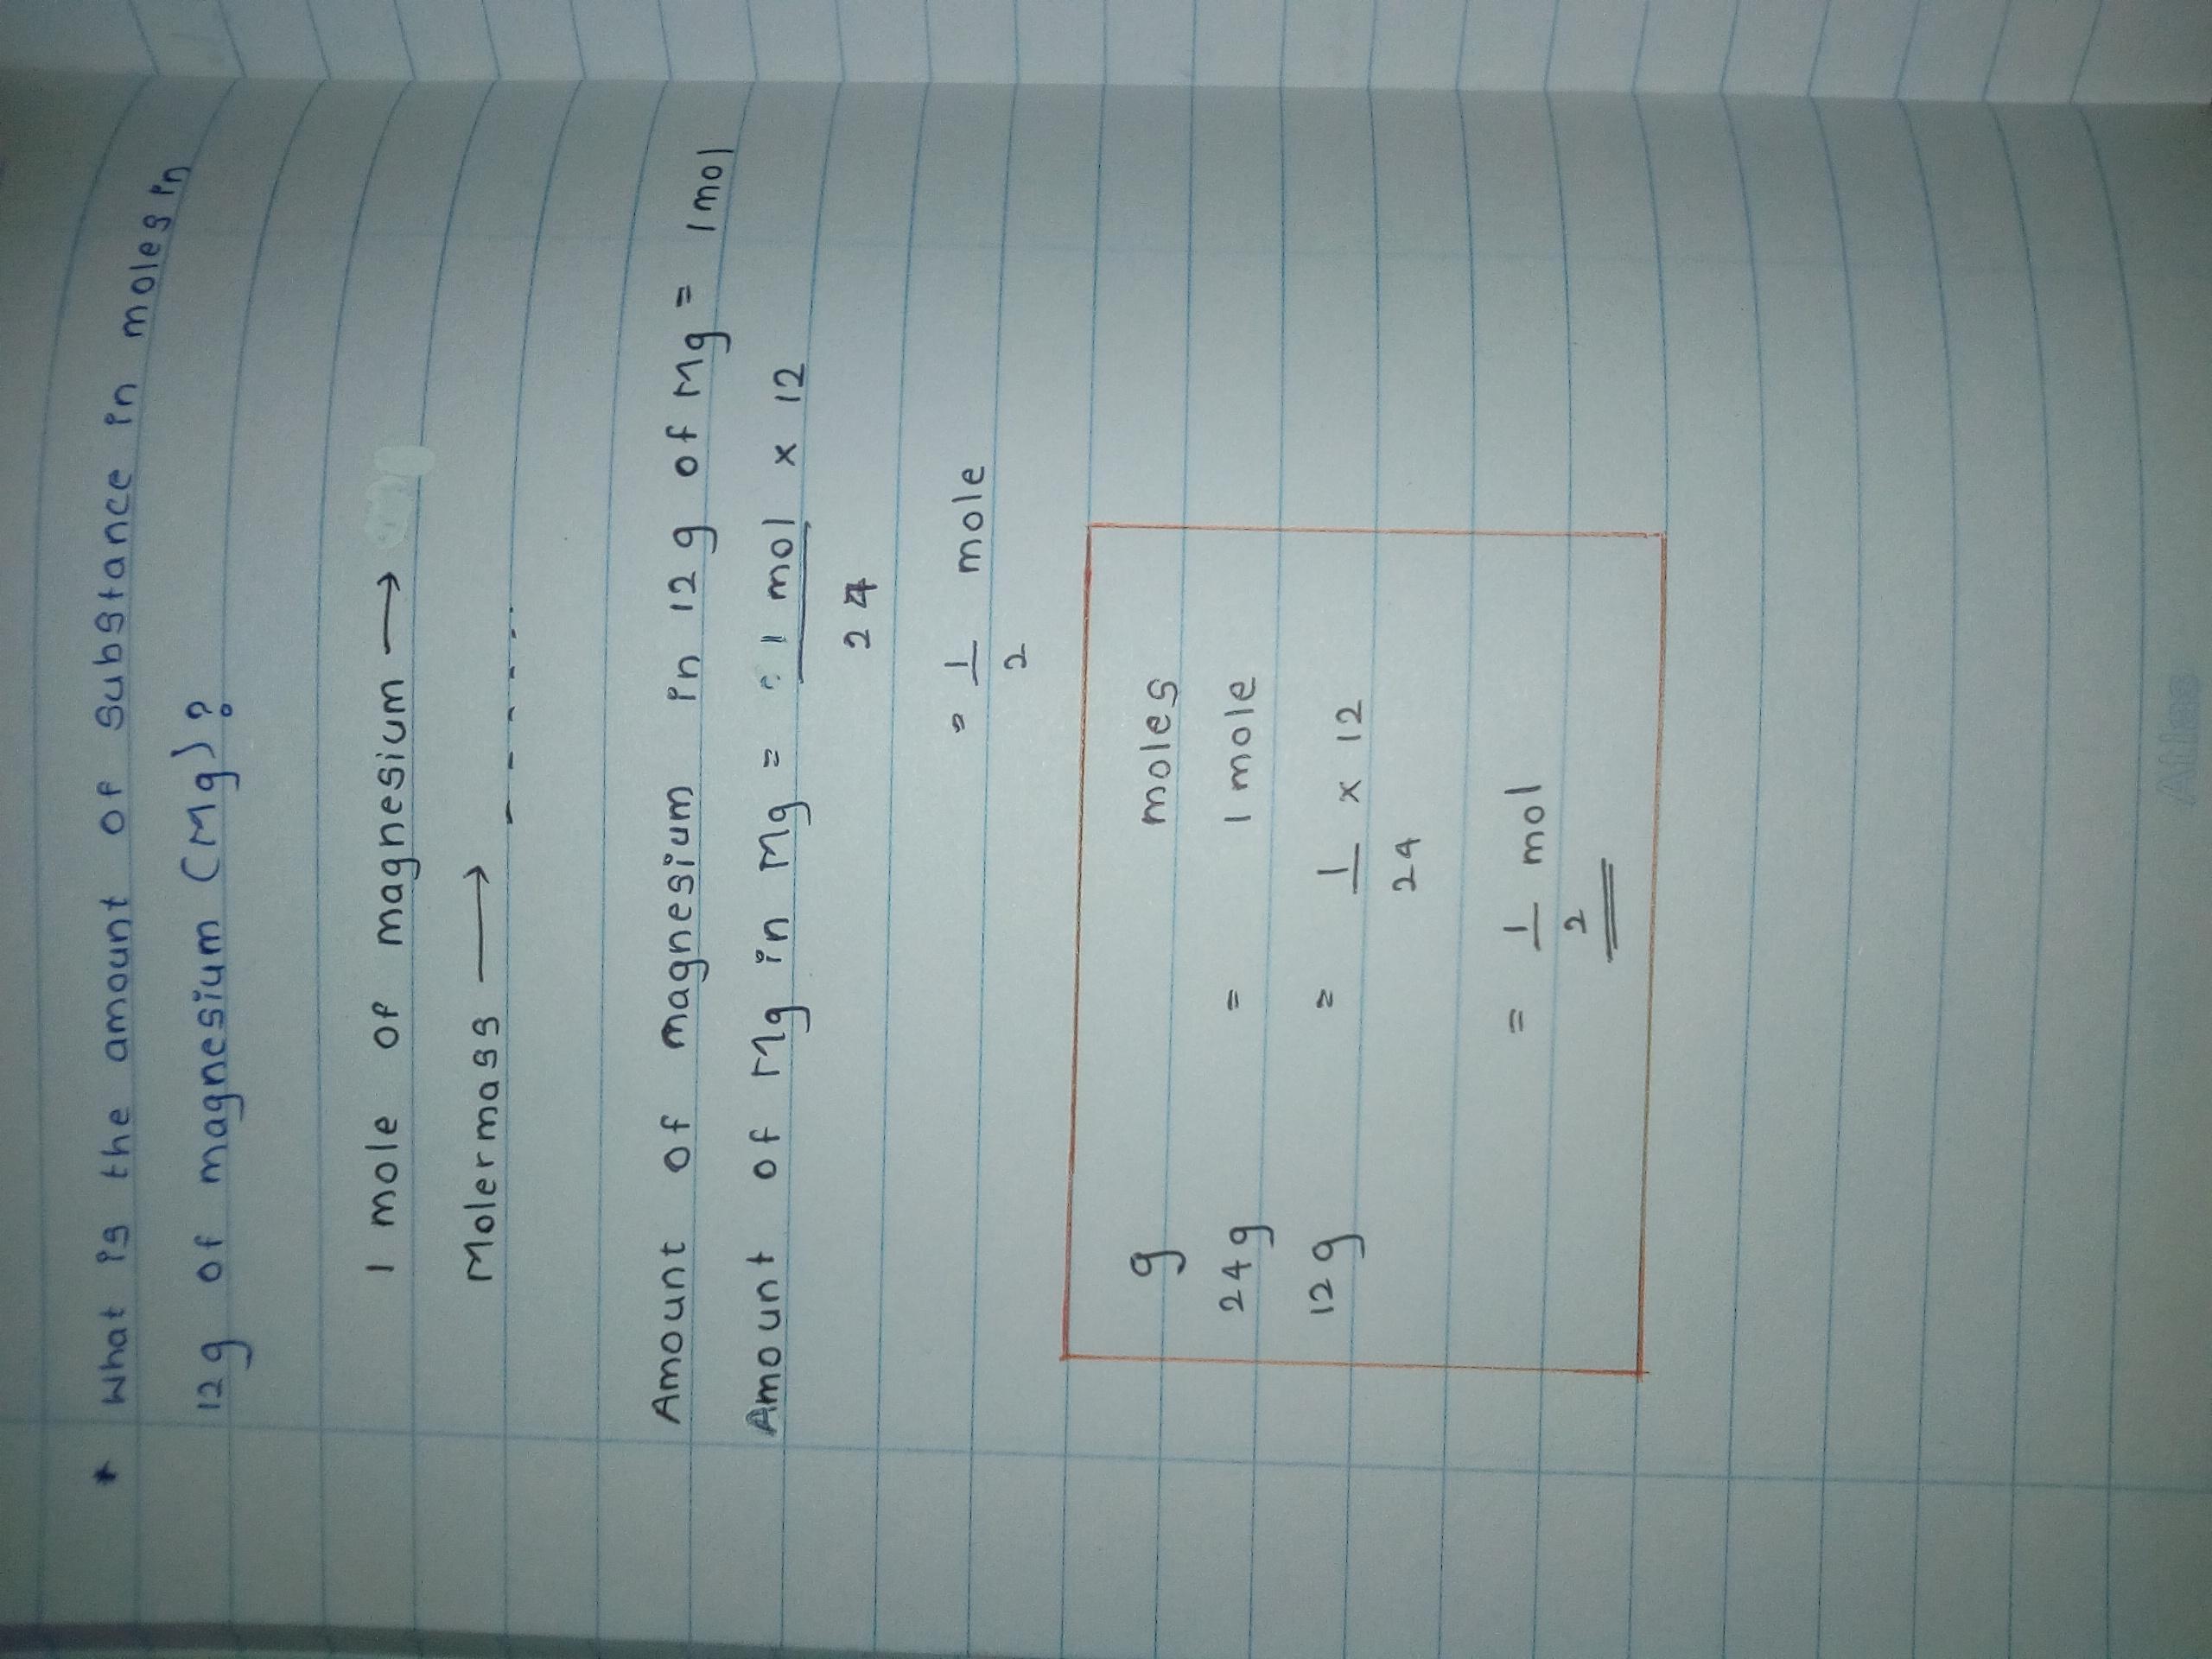 * What is the amount of substance in moles in
12g of magnesium (Mg)?
1 mole of magnesium →
Molermass → - - - - -
Amount of magnesium in 12 g of Mg = 1 mol
Amount of Mg in Mg = 1 mol x 12
24
= 1 mole
2
g moles
24g = 1 mole
12g = 1 x 12
24
= 1 mol
2
Atlas